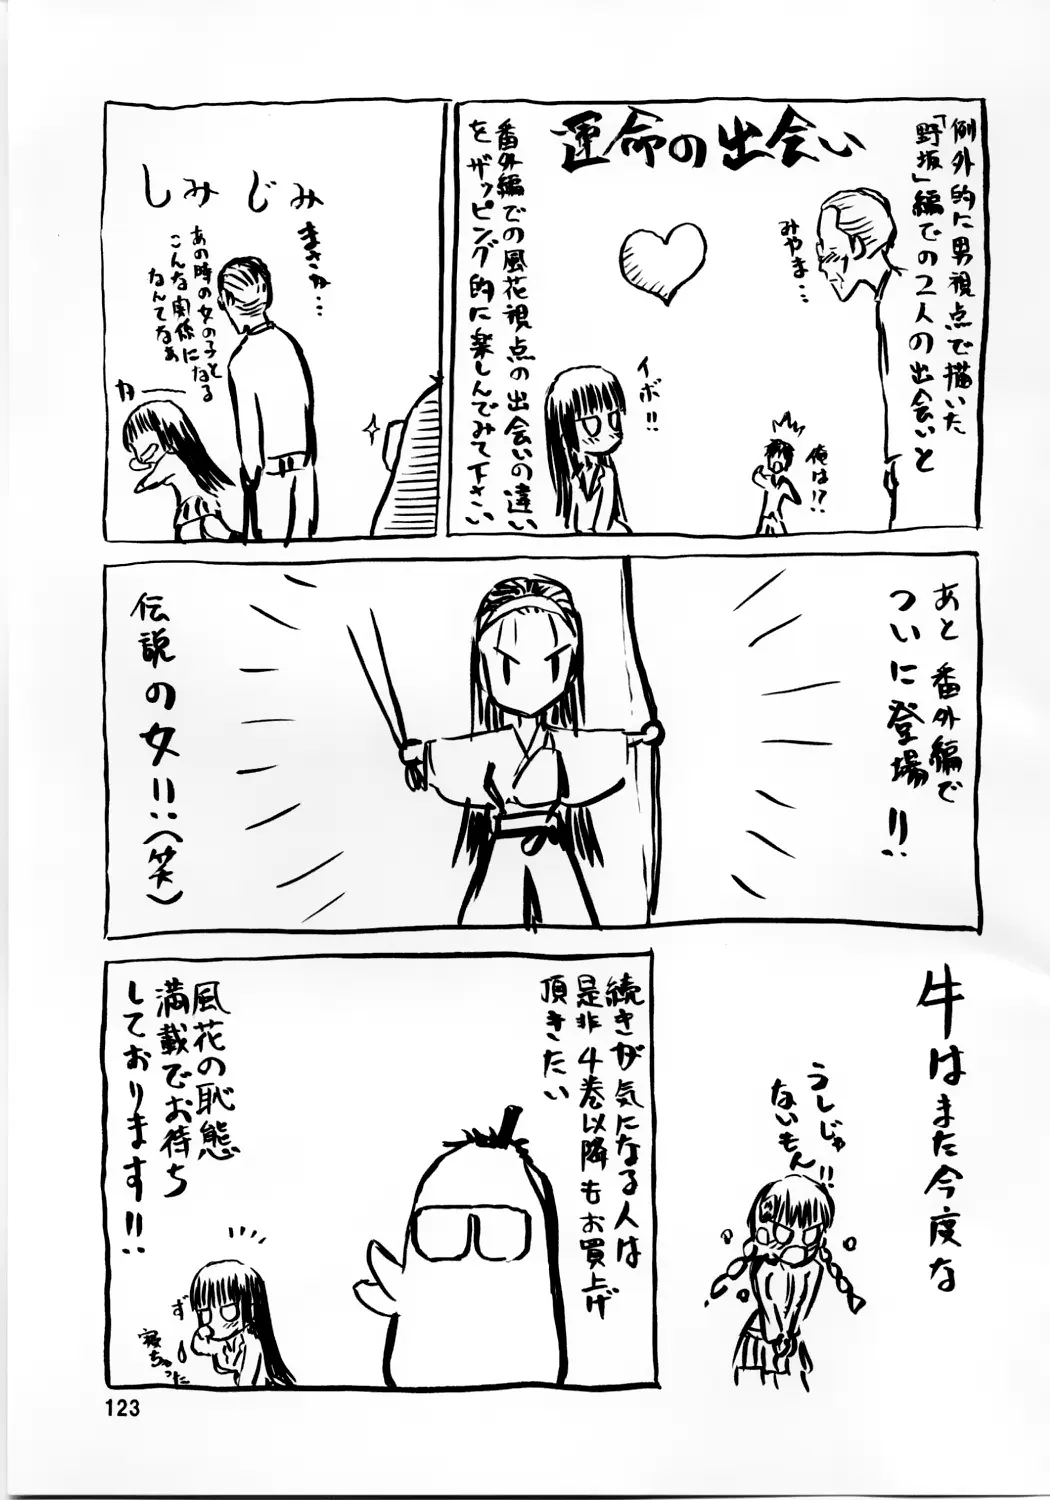 例外的に男視点で描いた
「野坂」編での2人の出会いと
運命の出会い
みやま…
俺は!?
イボ!!
番外編での風花視点の出会いの違い
をザッピング的に楽しんでみて下さい
しみじみ
まさか…
あの時の女の子と
こんな関係に
なるなんてなぁ
カー
あと番外編で
ついに登場!!
伝説の女!!(笑)
牛はまた今度な
うしじゃ
ないもん!!
続きが気になる人は
是非4巻以降もお買上げ
頂きたい
風花の恥態
満載でお待ち
しております!!
ず
寝ちゃった
123